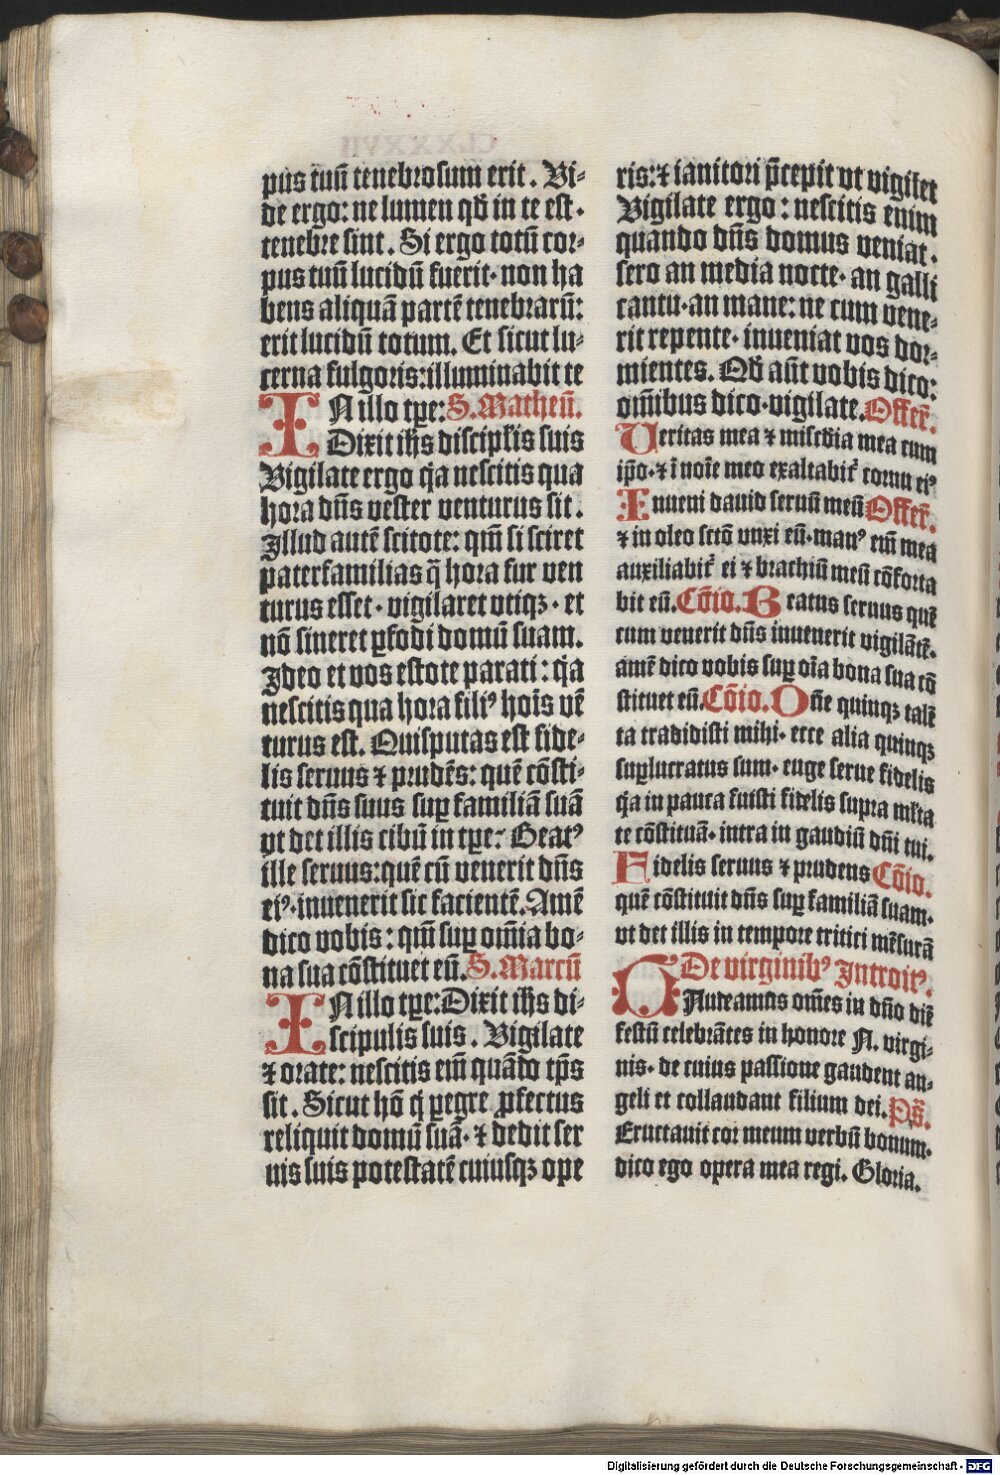 pus tuū tenebrosum erit. Vi-
de ergo: ne lumen qd̄ in te est.
tenebre sint. Si ergo totū cor-
pus tuū lucidū fuerit· non ha
bens aliquā partē tenebrarū:
erit lucidū totum. Et sicut lu-
cerna fulgoris: illuminabit te
IN illo tp̄e: S. Matheū.
Dixit ih̄s discipl̄is suis
Vigilate ergo q̄a nescitis qua
hora dn̄s vester venturus sit.
Illud autē scitote: qm̄ si sciret
paterfamilias q̄ hora fur ven
turus esset· vigilaret vtiqꝫ· et
nō sineret ꝑfodi domū suam.
Ideo et vos estote parati: q̄a
nescitis qua hora filiꝰ hoīs vē
turus est. Quis putas est fide-
lis seruus ⁊ prudēs: quē cōsti-
tuit dn̄s suus suꝑ familiā suā
vt det illis cibū in tp̄e: Beatꝰ
ille seruus: quē cū venerit dn̄s
eiꝰ· inuenerit sic facientē. Amē
dico vobis: qm̄ suꝑ om̄ia bo-
na sua cōstituet eū. S. Marcū
IN illo tp̄e: Dixit ih̄s di-
scipulis suis. Vigilate
⁊ orate: nescitis em̄ quādo tp̄s
sit. Sicut hō q̄ ꝑegre ꝓfectus
reliquit domū suā· ⁊ dedit ser
uis suis potestatē cuiusqꝫ ope
ris: ⁊ ianitori p̄cepit vt vigilet
Vigilate ergo: nescitis enim
quando dn̄s domus veniat.
sero an media nocte· an galli
cantu· an mane: ne cum vene-
rit repente· inueniat vos dor-
mientes. Qd̄ aūt vobis dico:
om̄ibus dico· vigilate. Offer̄.
Veritas mea ⁊ mis̄cd̄ia mea cum
ip̄o· ⁊ ī noīe meo exaltabit̄ cornu eiꝰ
Inueni dauid seruū meū Offer̄.
⁊ in oleo sctō vnxi eū· manꝰ em̄ mea
auxiliabit̄ ei ⁊ brachiū meū cōforta
bit eū. Cōio. Beatus seruus quē
cum venerit dn̄s inuenerit vigilātē.
amē dico vobis suꝑ oīa bona sua cō
stituet eū. Cōio. Dn̄e quinqꝫ talē
ta tradidisti mihi· ecce alia quinqꝫ
suꝑlucratus sum· euge serue fidelis
q̄a in pauca fuisti fidelis supra ml̄ta
te cōstituā· intra in gaudiū dn̄i tui.
Fidelis seruus ⁊ prudens Cōio.
quē cōstituit dn̄s suꝑ familiā suam·
vt det illis in tempore tritici mēsurā
De virginibꝰ Introitꝰ.
Gaudeamus om̄es in dn̄o diē
festū celebrātes in honore N. virgi-
nis· de cuius passione gaudent an-
geli et collaudant filium dei. Ps̄.
Eructauit cor meum verbū bonum·
dico ego opera mea regi. Gloria.
Digitalisierung gefördert durch die Deutsche Forschungsgemeinschaft - DFG